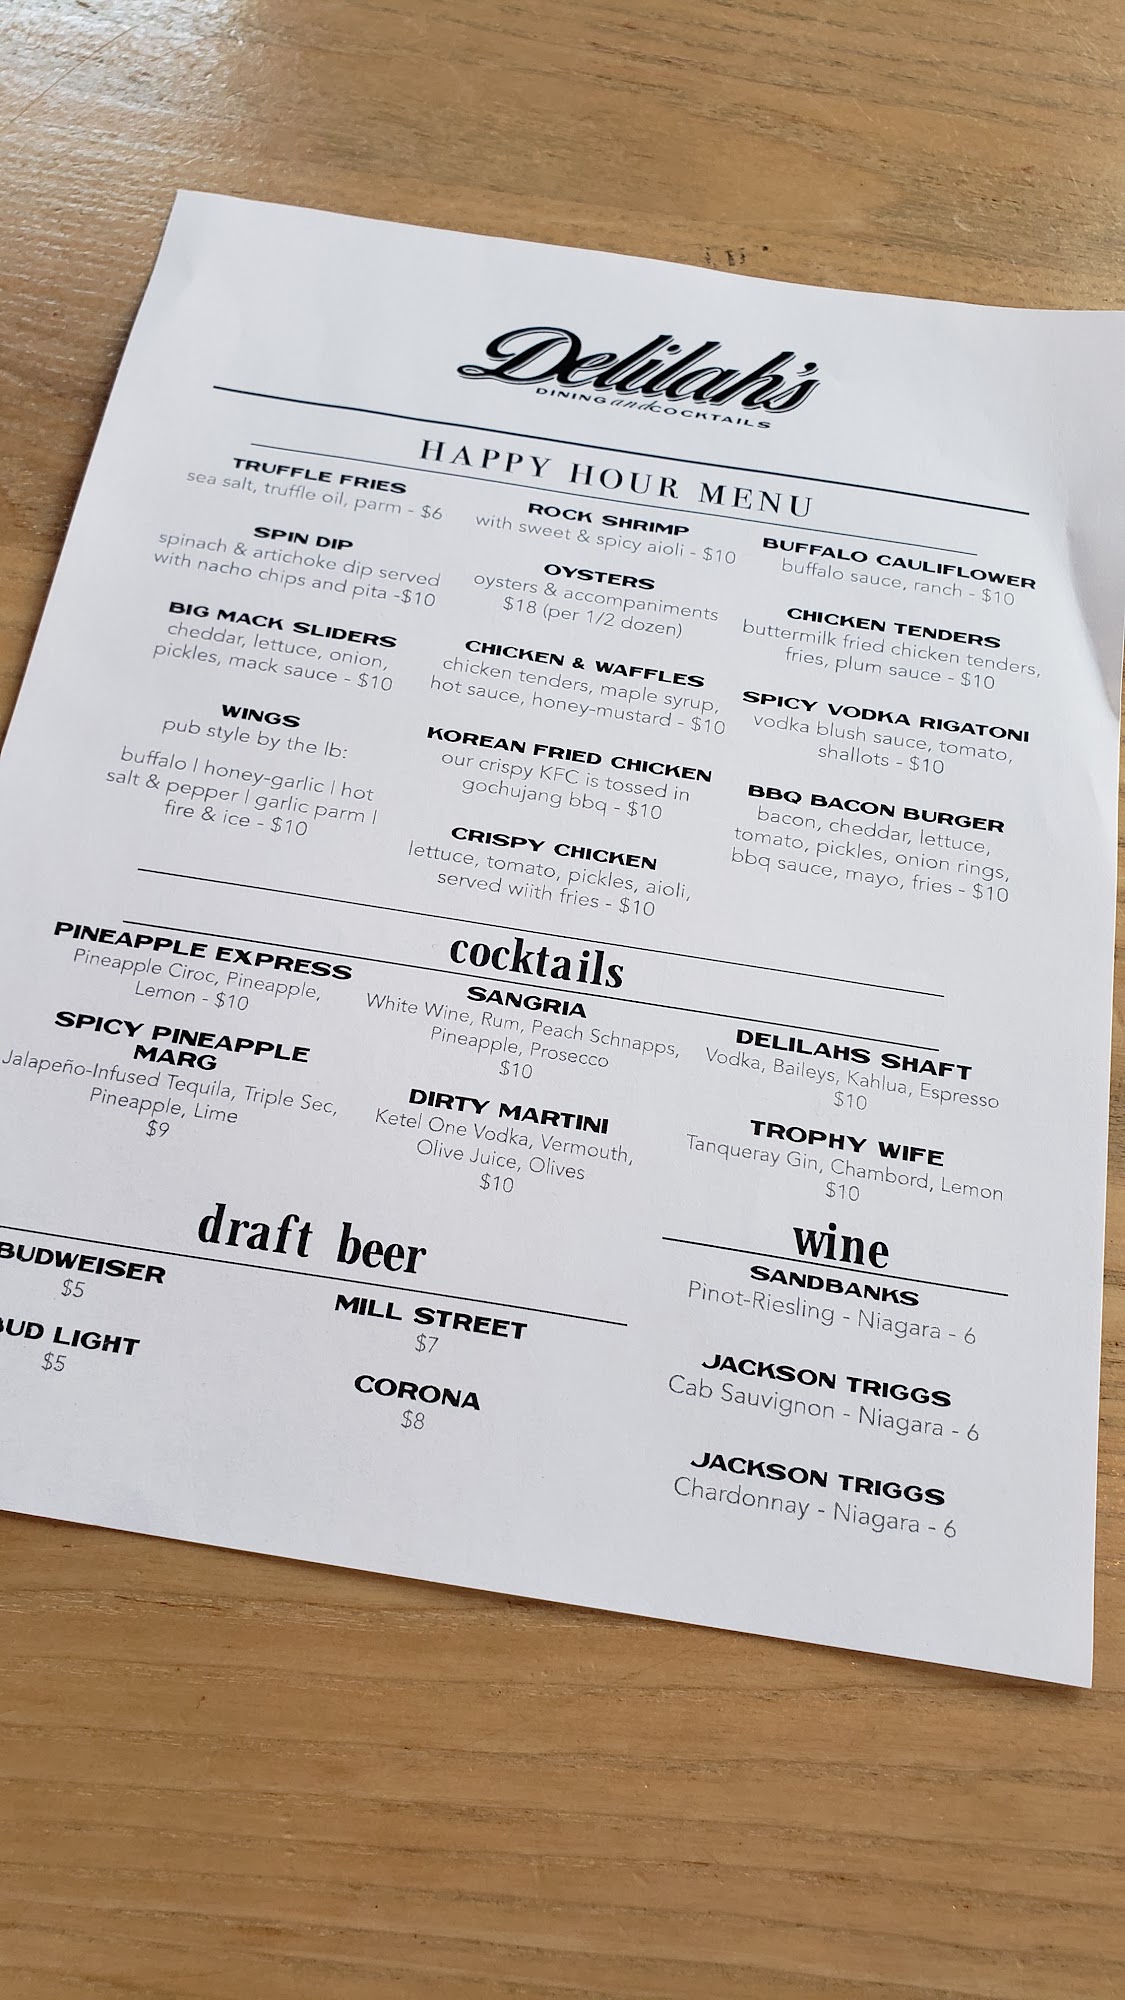 Delilah's
DINING and COCKTAILS
HAPPY HOUR MENU
TRUFFLE FRIES
sea salt, truffle oil, parm - $6
SPIN DIP
spinach & artichoke dip served
with nacho chips and pita -$10
BIG MACK SLIDERS
cheddar, lettuce, onion,
pickles, mack sauce - $10
WINGS
pub style by the lb:
buffalo | honey-garlic | hot
salt & pepper | garlic parm |
fire & ice - $10
ROCK SHRIMP
with sweet & spicy aioli - $10
OYSTERS
oysters & accompaniments
$18 (per 1/2 dozen)
CHICKEN & WAFFLES
chicken tenders, maple syrup,
hot sauce, honey-mustard - $10
KOREAN FRIED CHICKEN
our crispy KFC is tossed in
gochujang bbq - $10
CRISPY CHICKEN
lettuce, tomato, pickles, aioli,
served wiith fries - $10
BUFFALO CAULIFLOWER
buffalo sauce, ranch - $10
CHICKEN TENDERS
buttermilk fried chicken tenders,
fries, plum sauce - $10
SPICY VODKA RIGATONI
vodka blush sauce, tomato,
shallots - $10
BBQ BACON BURGER
bacon, cheddar, lettuce,
tomato, pickles, onion rings,
bbq sauce, mayo, fries - $10
cocktails
PINEAPPLE EXPRESS
Pineapple Ciroc, Pineapple,
Lemon - $10
SPICY PINEAPPLE
MARG
Jalapeño-Infused Tequila, Triple Sec,
Pineapple, Lime
$9
SANGRIA
White Wine, Rum, Peach Schnapps,
Pineapple, Prosecco
$10
DIRTY MARTINI
Ketel One Vodka, Vermouth,
Olive Juice, Olives
$10
DELILAHS SHAFT
Vodka, Baileys, Kahlua, Espresso
$10
TROPHY WIFE
Tanqueray Gin, Chambord, Lemon
$10
draft beer
BUDWEISER
$5
BUD LIGHT
$5
MILL STREET
$7
CORONA
$8
wine
SANDBANKS
Pinot-Riesling - Niagara - 6
JACKSON TRIGGS
Cab Sauvignon - Niagara - 6
JACKSON TRIGGS
Chardonnay - Niagara - 6